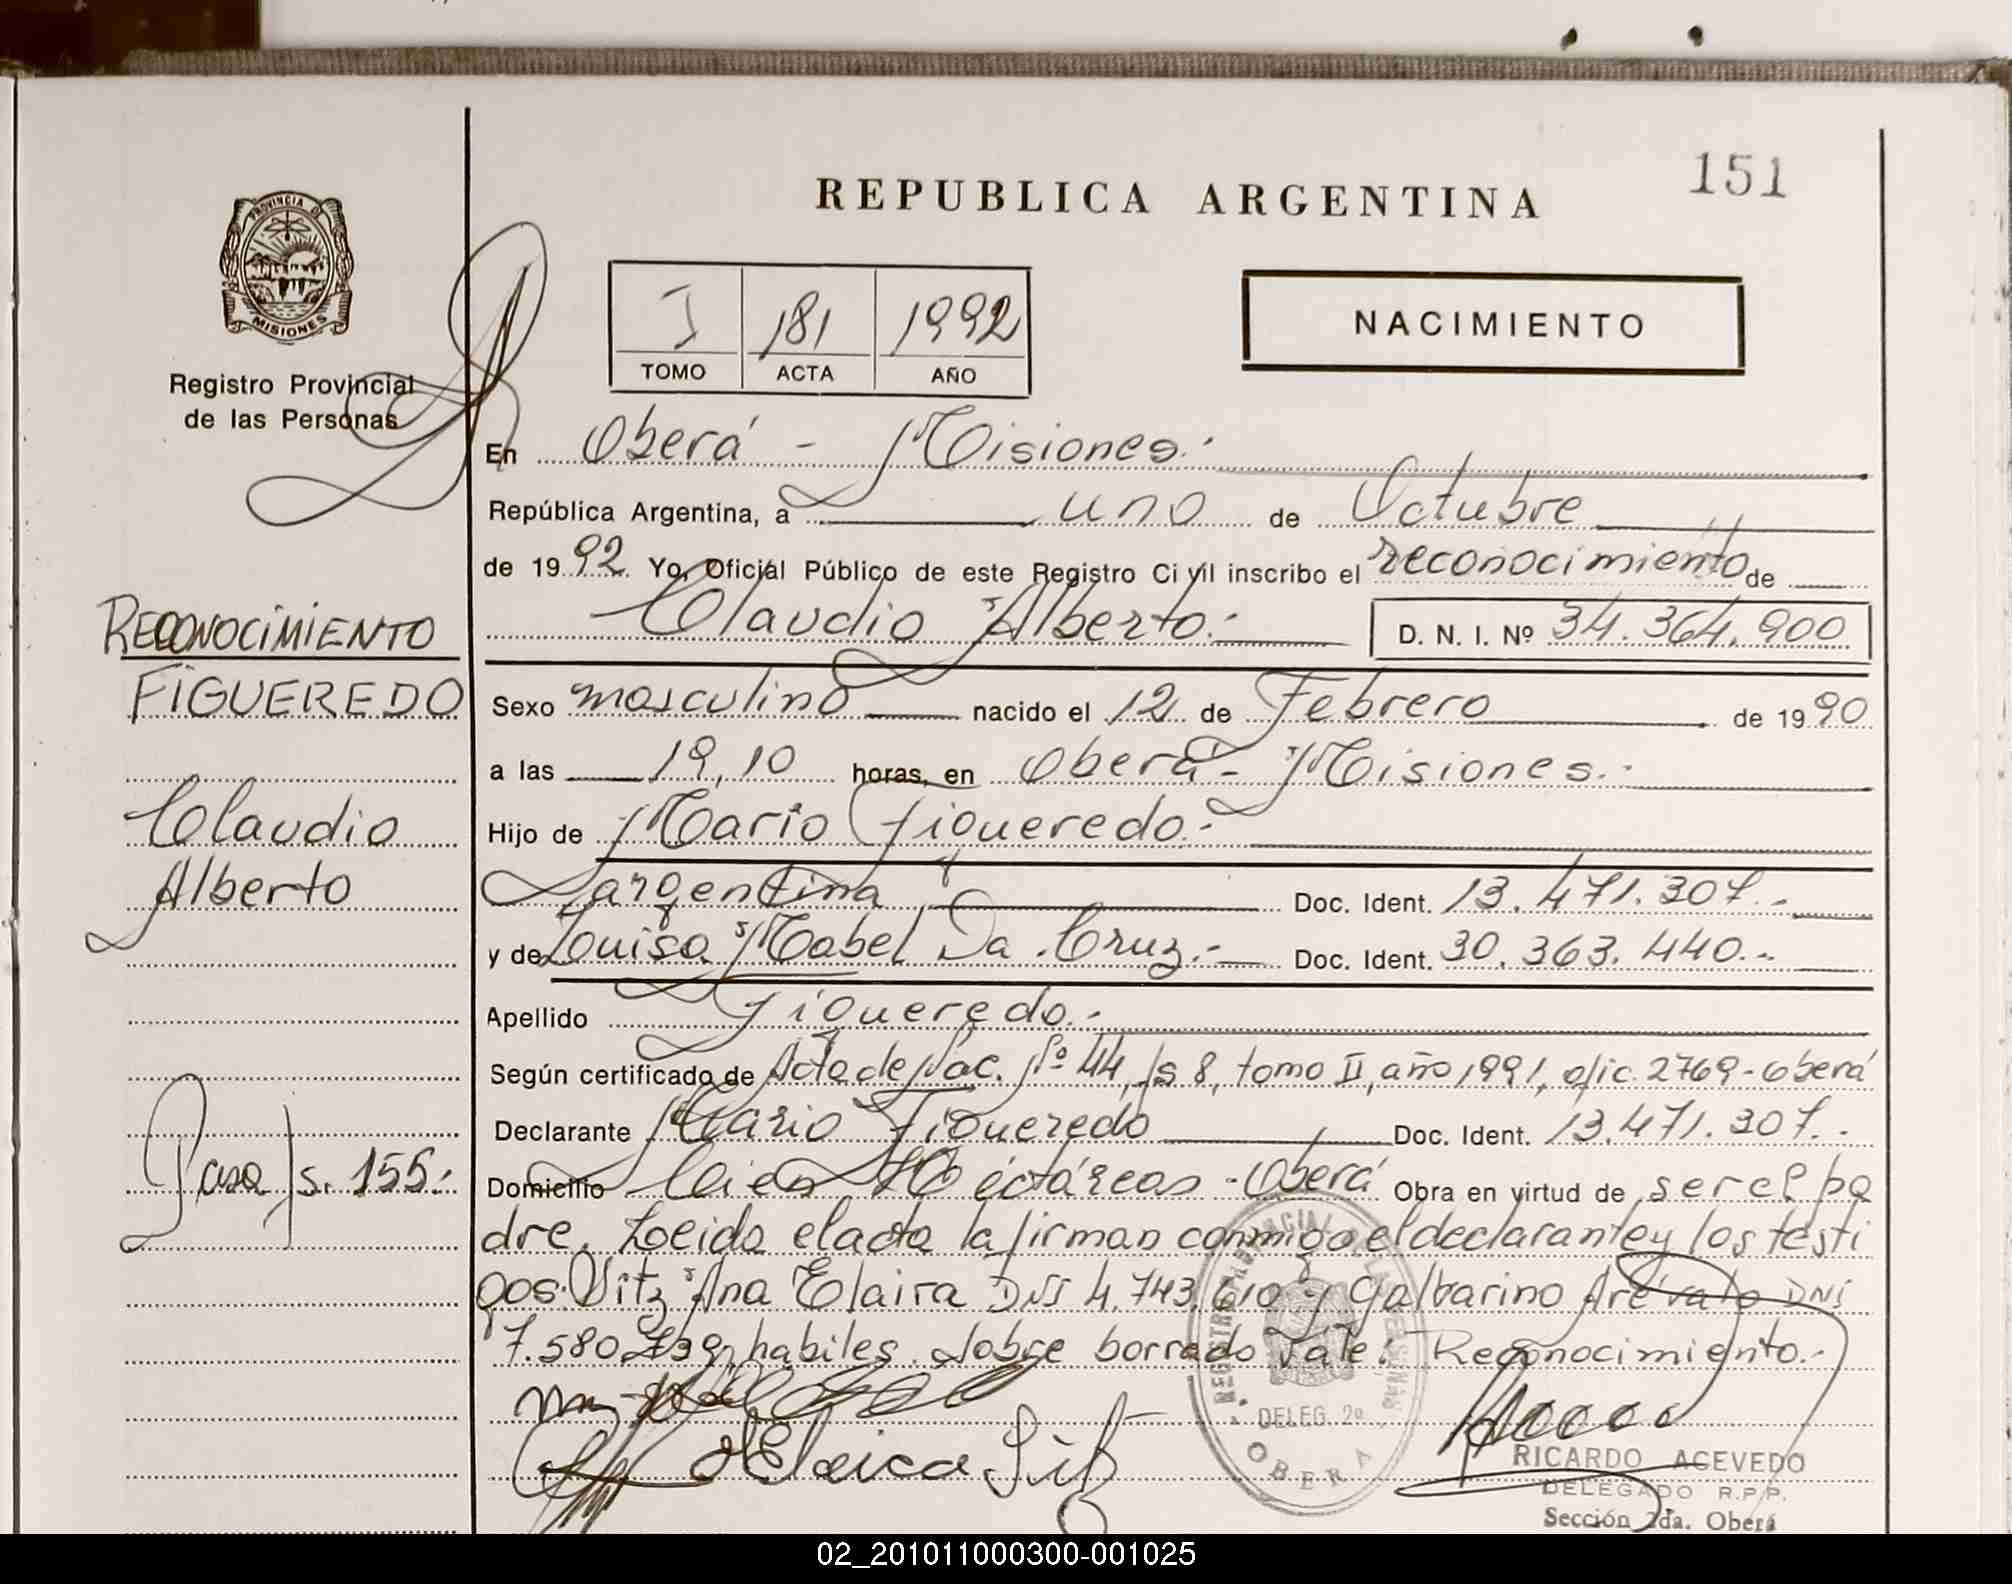 151
REPUBLICA ARGENTINA
PROVINCIA D
MISIONES
Registro Provincial
de las Personas
I 181 1992
TOMO ACTA AÑO
NACIMIENTO
En Oberá - Misiones.-
República Argentina, a uno de Octubre
de 1992 Yo, Oficial Público de este Registro Civil inscribo el reconocimiento de
Claudio Alberto.- D. N. I. Nº 34.364.900
RECONOCIMIENTO
FIGUEREDO
Claudio
Alberto
Sexo masculino nacido el 12 de Febrero de 1990
a las 19,10 horas, en Oberá - Misiones.-
Hijo de Mario Figueredo.-
argentina Doc. Ident. 13.471.307.-
y de Luisa Mabel Da Cruz.- Doc. Ident. 30.363.440.-
Apellido Figueredo.-
Según certificado de Acta de Nac. Nº 44, fs 8, tomo II, año 1991, ofic. 2769-Oberá
Declarante Mario Figueredo Doc. Ident. 13.471.307.-
Domicilio Cien Hectáreas - Oberá Obra en virtud de ser el pa
dre. Leida el acta la firman conmigo el declarante y los testi
gos: Vitz Ana Elaira DNI 4.743.610 y Galbarino Arévalo DNI
7.580.739, habiles. Sobre borrado vale: Reconocimiento.-
Pasa fs. 155.-
REGISTRO PROVINCIAL DE LAS PERSONAS
DELEG. 2ª
OBERA
RICARDO ACEVEDO
DELEGADO R.P.P.
Sección 2da. Oberá
02_201011000300-001025